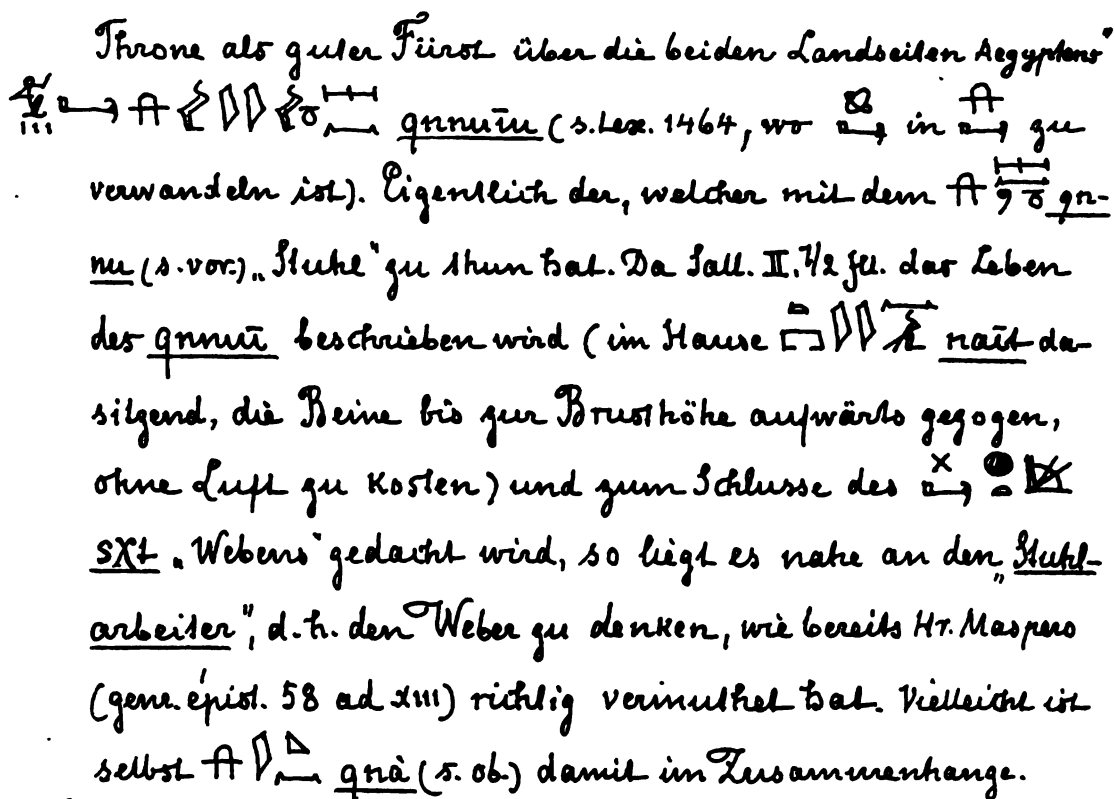 Throne als guter Fürst über die beiden Landseiten Aegyptens"
qnnuīu (s. Lex. 1464, wo in zu
verwandeln ist). Eigentlich der, welcher mit dem qn-
nu (s. vor.) „Stuhl" zu thun hat. Da Sall. II, 7/2 fll. das Leben
des qnnuī beschrieben wird (im Hause naīt da-
sitzend, die Beine bis zur Brusthöhe aufwärts gezogen,
ohne Luft zu kosten) und zum Schlusse des
sχt „Webens" gedacht wird, so liegt es nahe an den „Stuhl-
arbeiter", d. h. den Weber zu denken, wie bereits Hr. Maspero
(genr. épist. 58 ad XIII) richtig vermuthet hat. Vielleicht ist
selbst qnà (s. ob.) damit im Zusammenhange.